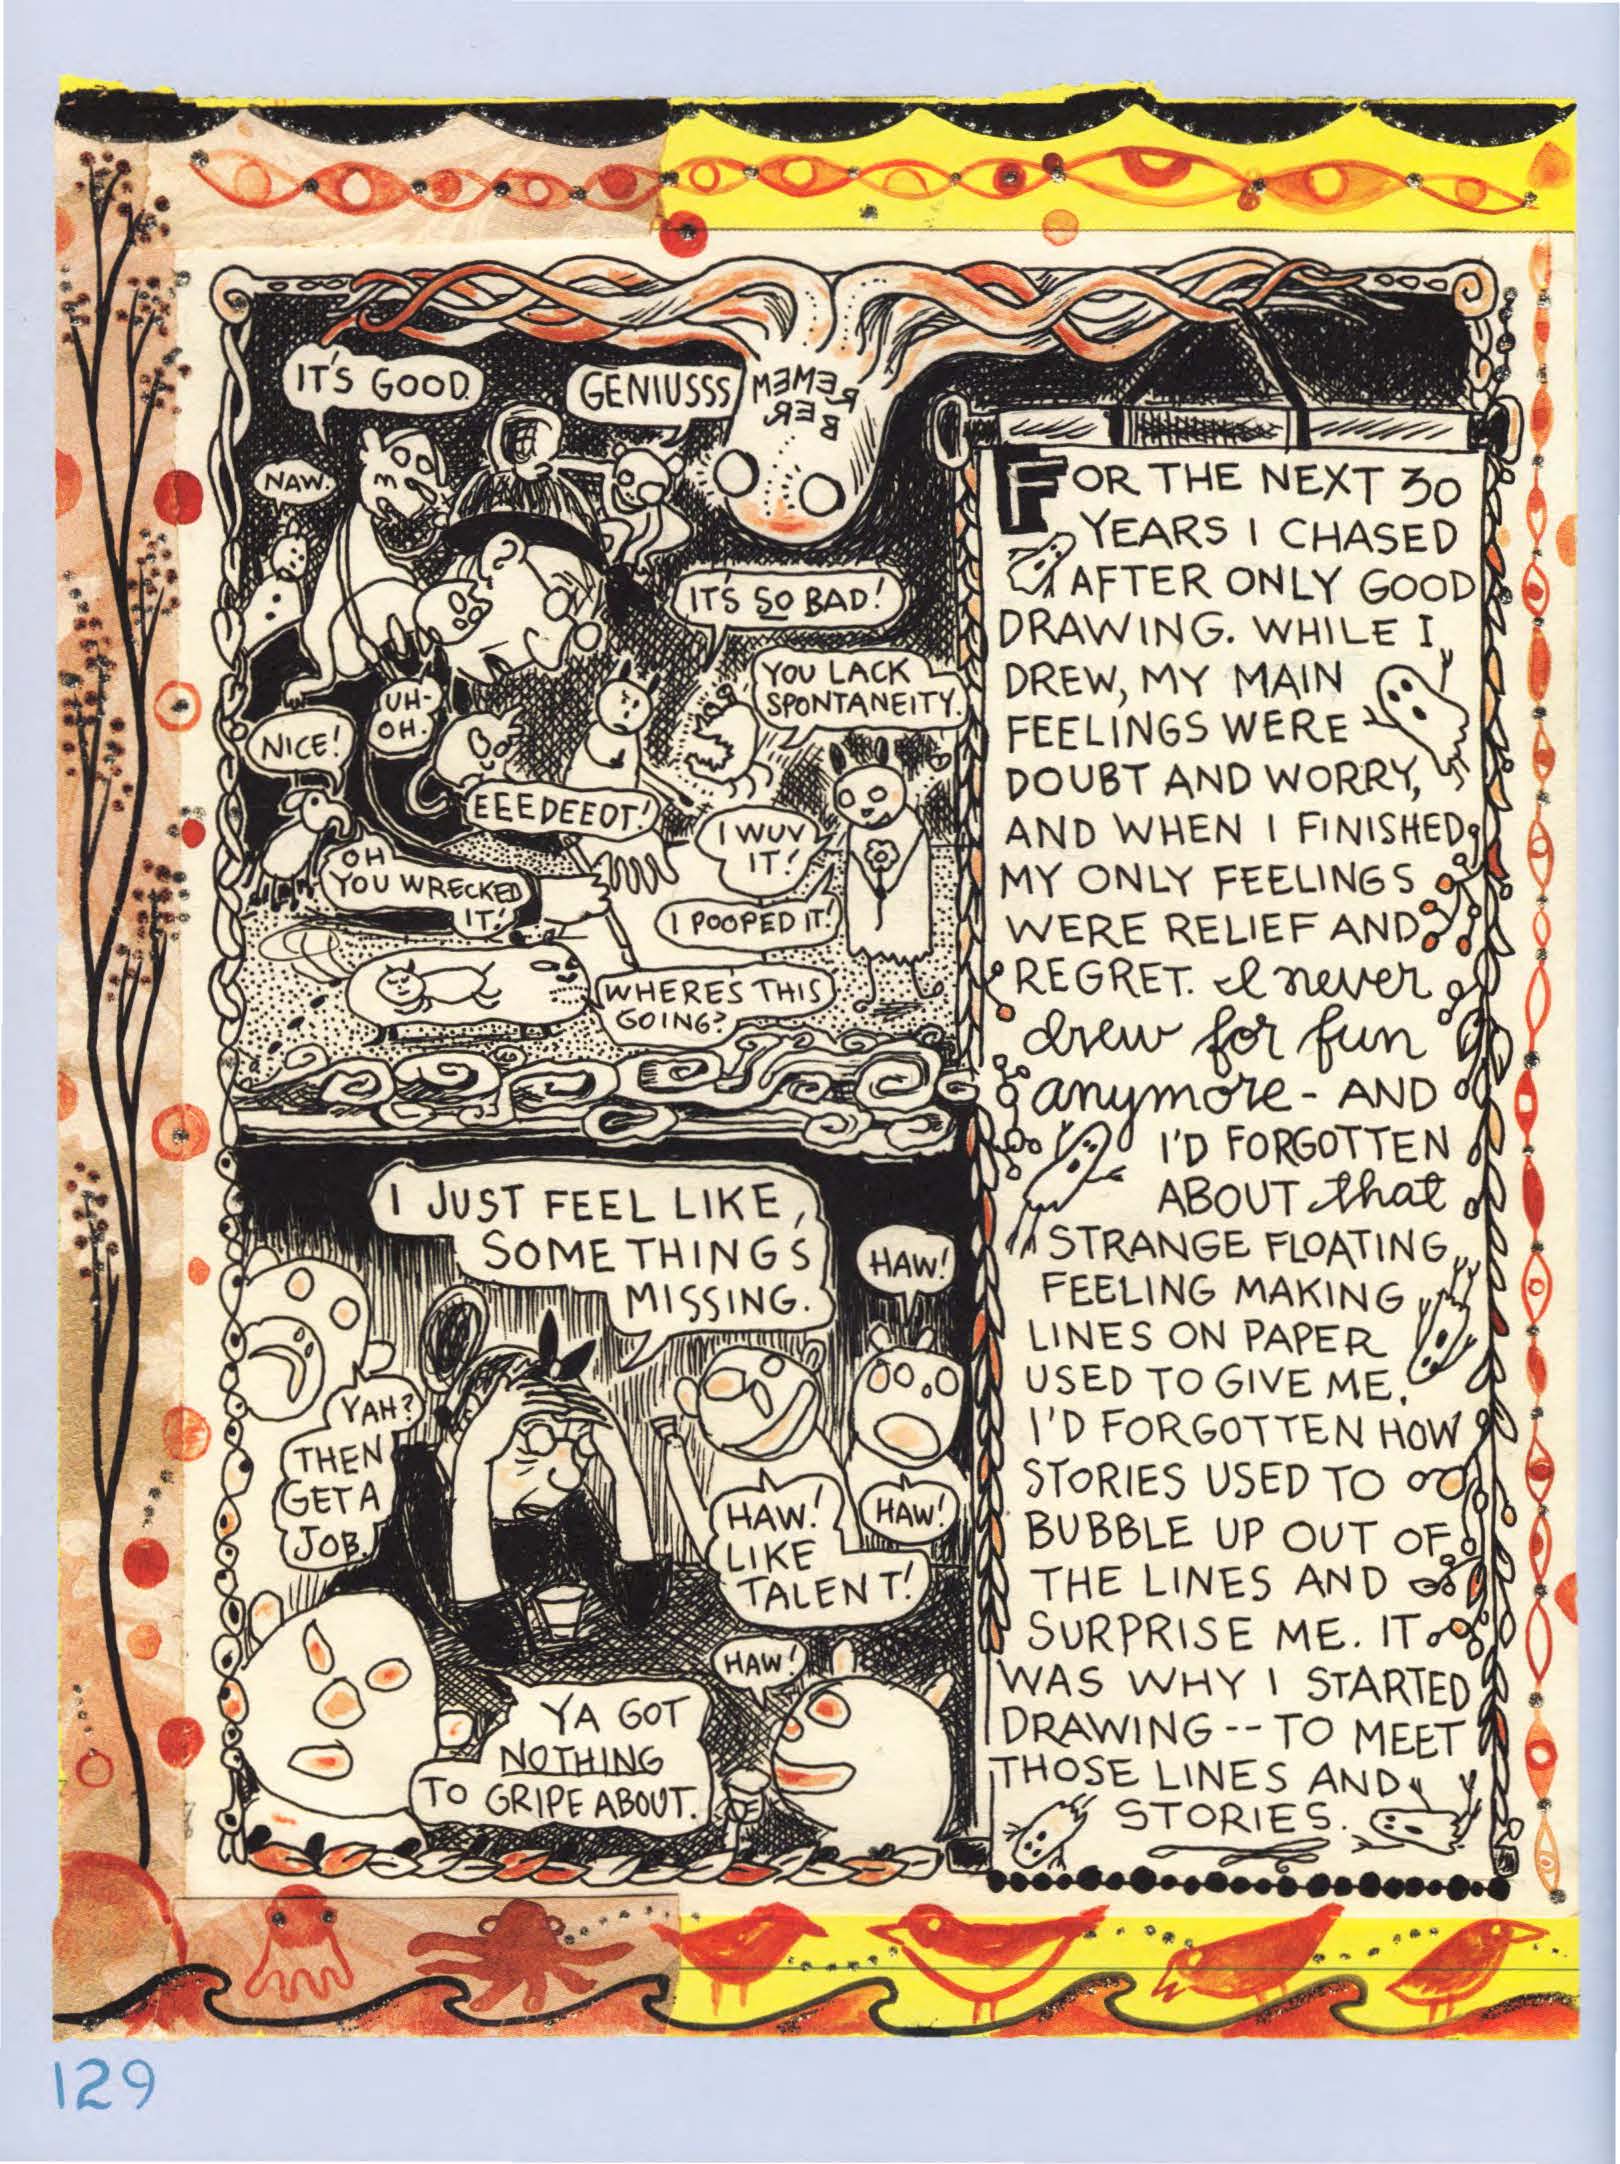 IT'S GOOD.
GENIUSSS
REMEM
BER
NAW.
IT'S SO BAD!
YOU LACK
SPONTANEITY.
UH-
OH.
NICE!
EEEDEEOT!
I WUV
IT!
OH
YOU WRECKED
IT!
I POOPED IT!
WHERE'S THIS
GOING?
I JUST FEEL LIKE,
SOMETHING'S
MISSING.
HAW!
YAH?
THEN
GET A
JOB.
HAW!
LIKE
TALENT!
HAW!
HAW!
YA GOT
NOTHING
TO GRIPE ABOUT.
FOR THE NEXT 30
YEARS I CHASED
AFTER ONLY GOOD
DRAWING. WHILE I
DREW, MY MAIN
FEELINGS WERE
DOUBT AND WORRY,
AND WHEN I FINISHED
MY ONLY FEELINGS
WERE RELIEF AND
REGRET. I never
drew for fun
anymore - AND
I'D FORGOTTEN
ABOUT that
STRANGE FLOATING
FEELING MAKING
LINES ON PAPER
USED TO GIVE ME.
I'D FORGOTTEN HOW
STORIES USED TO
BUBBLE UP OUT OF
THE LINES AND
SURPRISE ME. IT
WAS WHY I STARTED
DRAWING -- TO MEET
THOSE LINES AND
STORIES.
129